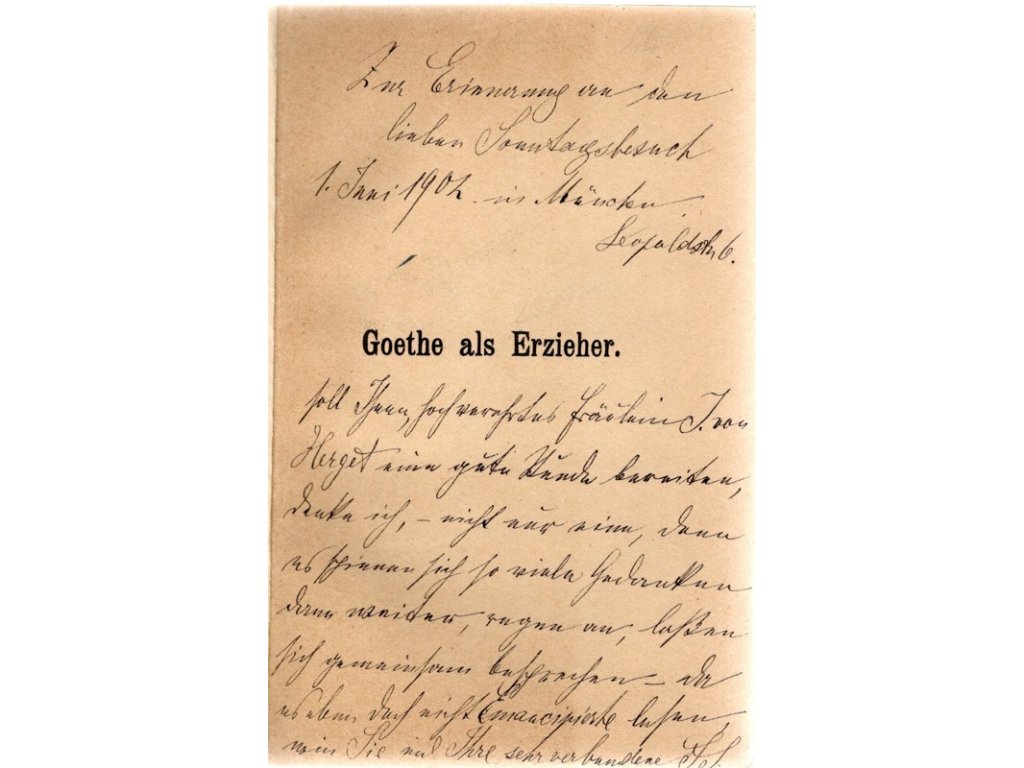 Zur Erinnerung an den
lieben Sonntagsbesuch
1. Juni 1902 in München
Leopoldstr 6.
Goethe als Erzieher.
soll Ihnen, hochverehrtes Fräulein J. von
Herget eine gute Stunde bereiten,
denke ich, – nicht nur eine, denn
es spinnen sich so viele Gedanken
dann weiter, regen an, laßen
sich gemeinsam besprechen – da
es eben doch nicht Emancipierte lesen,
wie Sie und Ihre sehr verbundene